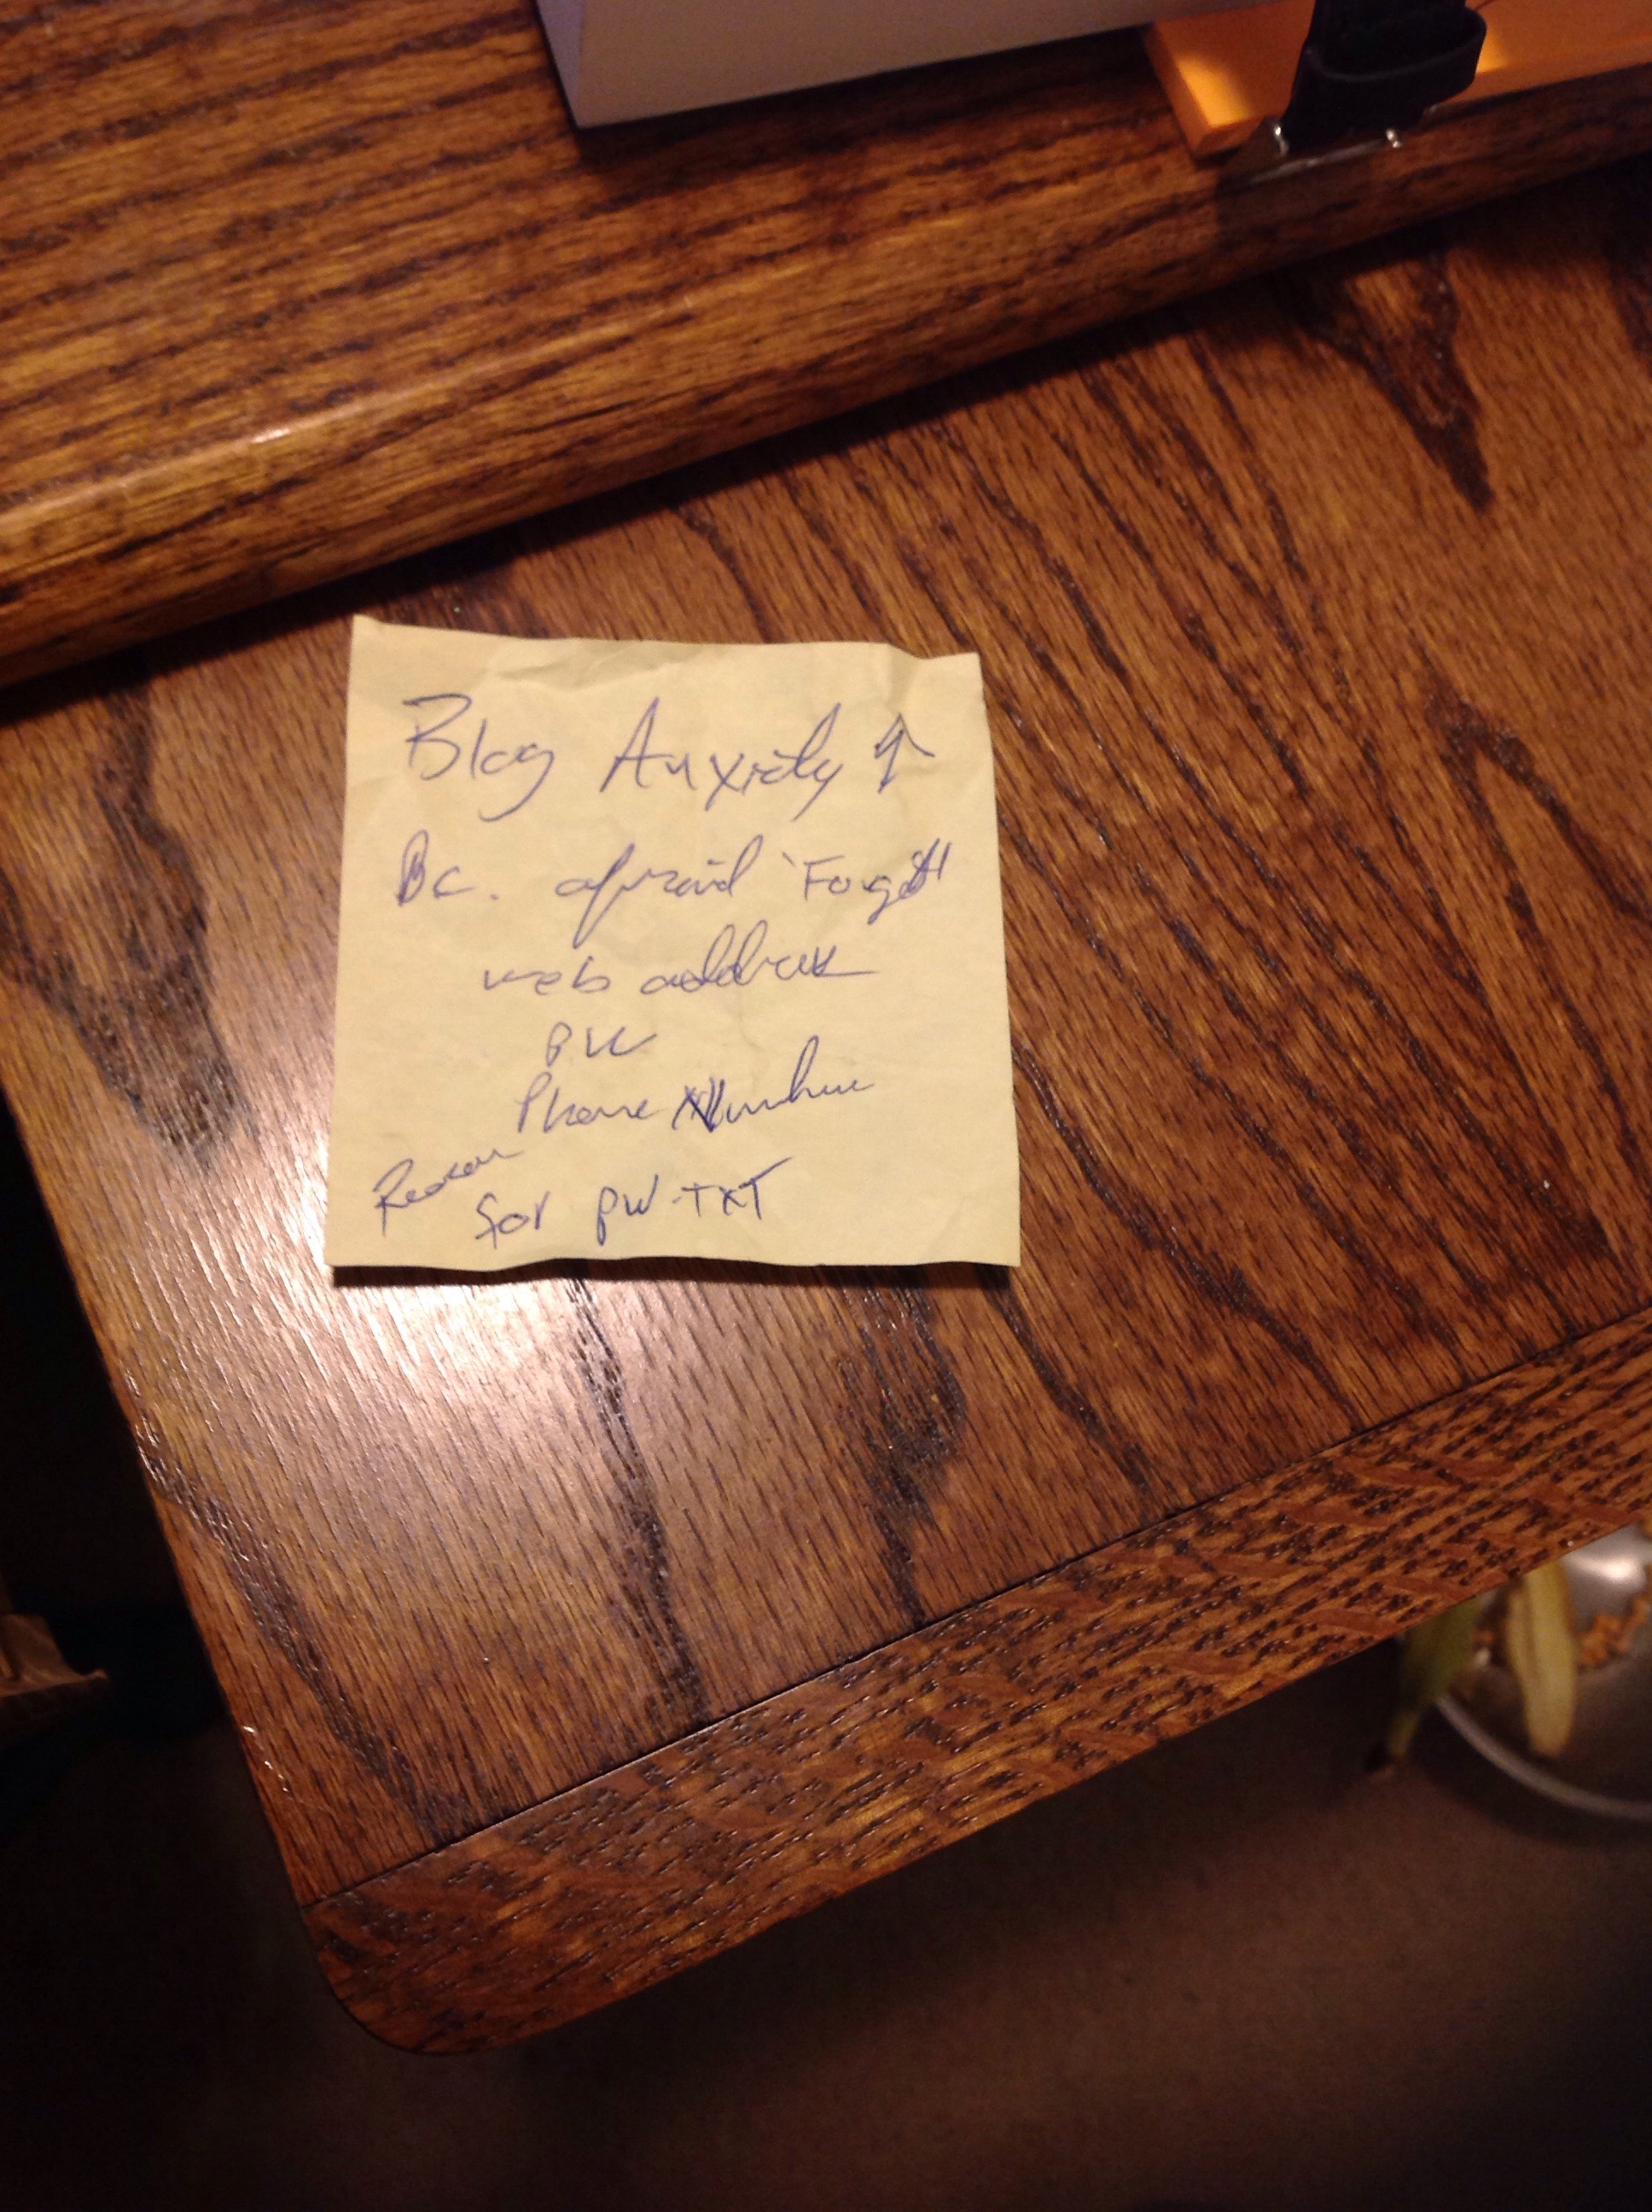 Blog Anxiety ↑
Bc. afraid "Forget"
web address
Phone Number
Reason
for pw.TXT